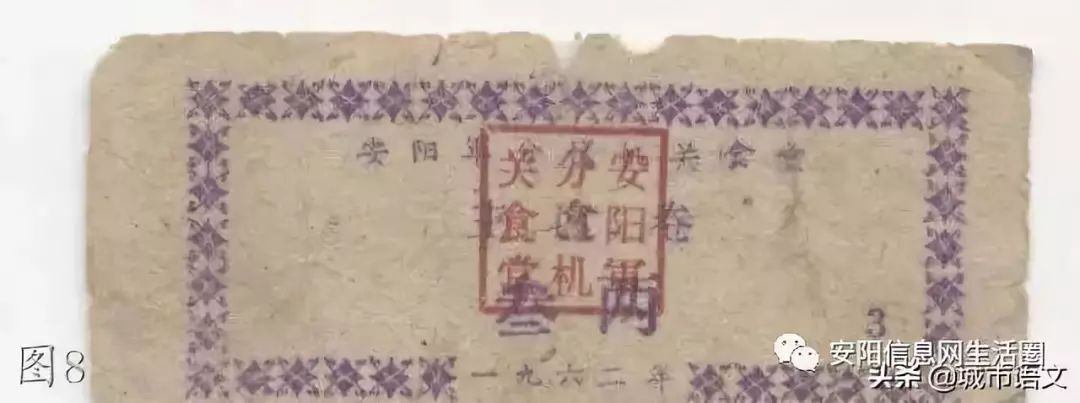 安阳军分区机关食堂
安阳軍
分区机
关食堂
卷
叁两
3
一九六二年
图8
安阳信息网生活圈
头条@城市语文